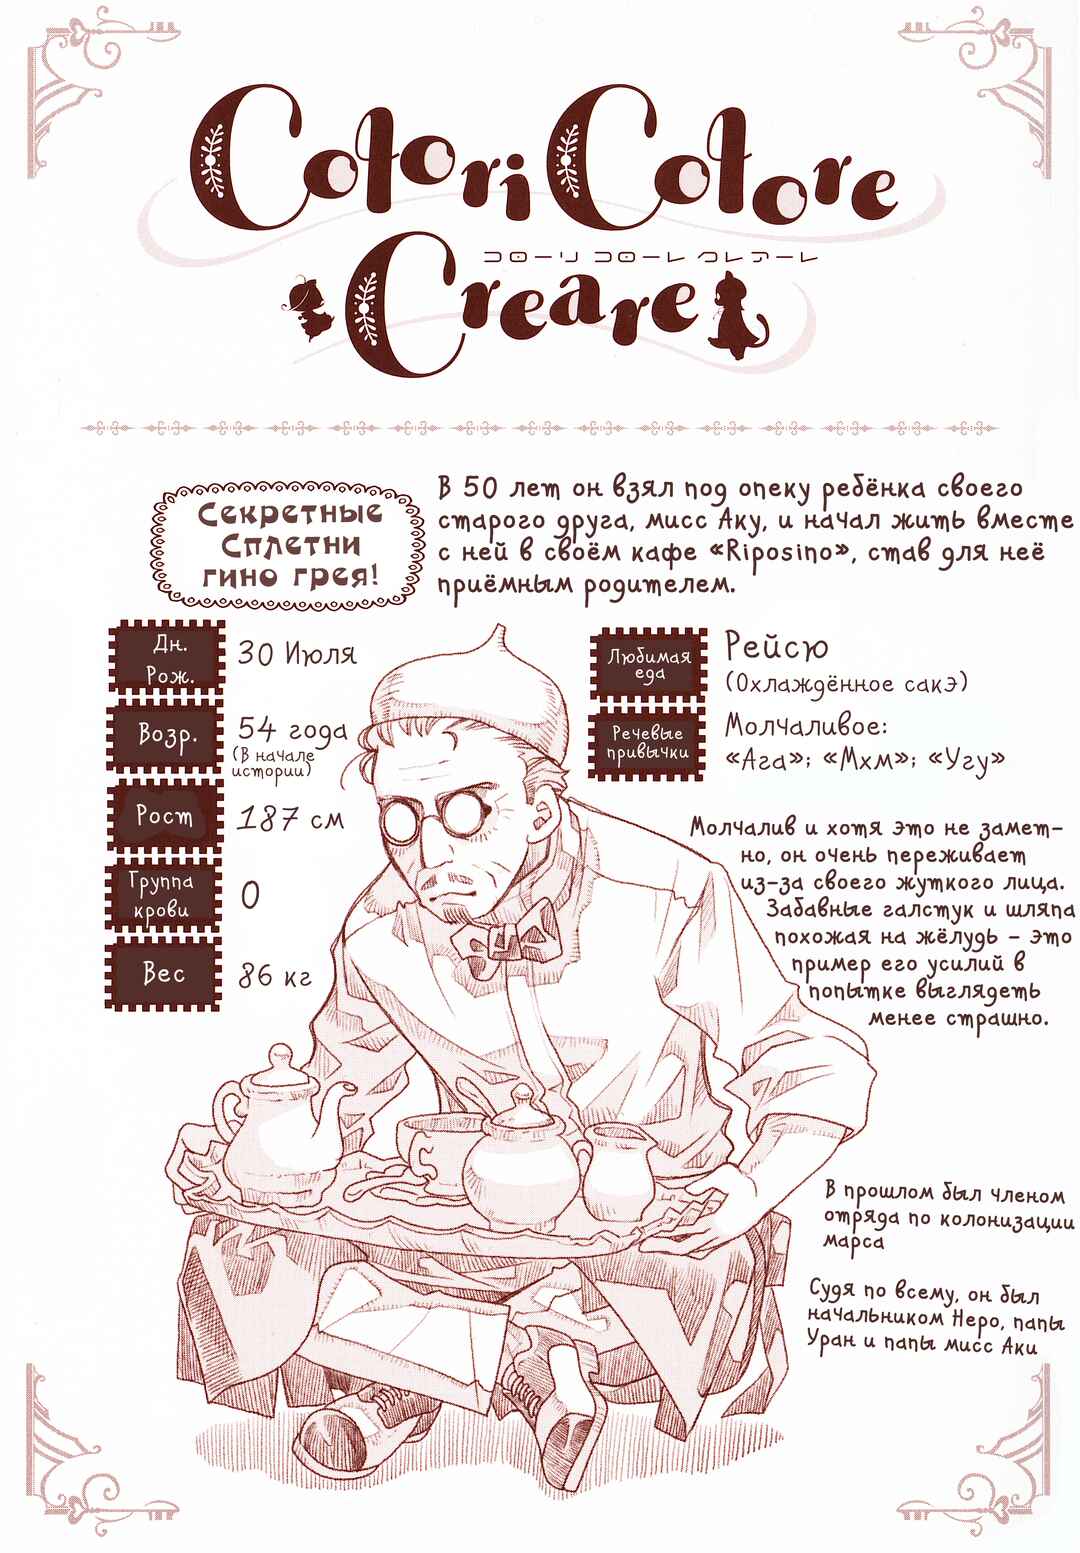 Colori Colore
コローリ コローレ クレアーレ
Creare
Секретные
Сплетни
гино грея!
В 50 лет он взял под опеку ребёнка своего
старого друга, мисс Аку, и начал жить вместе
с ней в своём кафе «Riposino», став для неё
приёмным родителем.
Дн.
Рож.
30 Июля
Возр.
54 года
(В начале
истории)
Рост
187 см
Группа
крови
0
Вес
86 кг
Любимая
еда
Рейсю
(Охлаждённое сакэ)
Речевые
привычки
Молчаливое:
«Ага»; «Мхм»; «Угу»
Молчалив и хотя это не замет-
но, он очень переживает
из-за своего жуткого лица.
Забавные галстук и шляпа
похожая на жёлудь - это
пример его усилий в
попытке выглядеть
менее страшно.
В прошлом был членом
отряда по колонизации
марса
Судя по всему, он был
начальником Неро, папы
Уран и папы мисс Аки